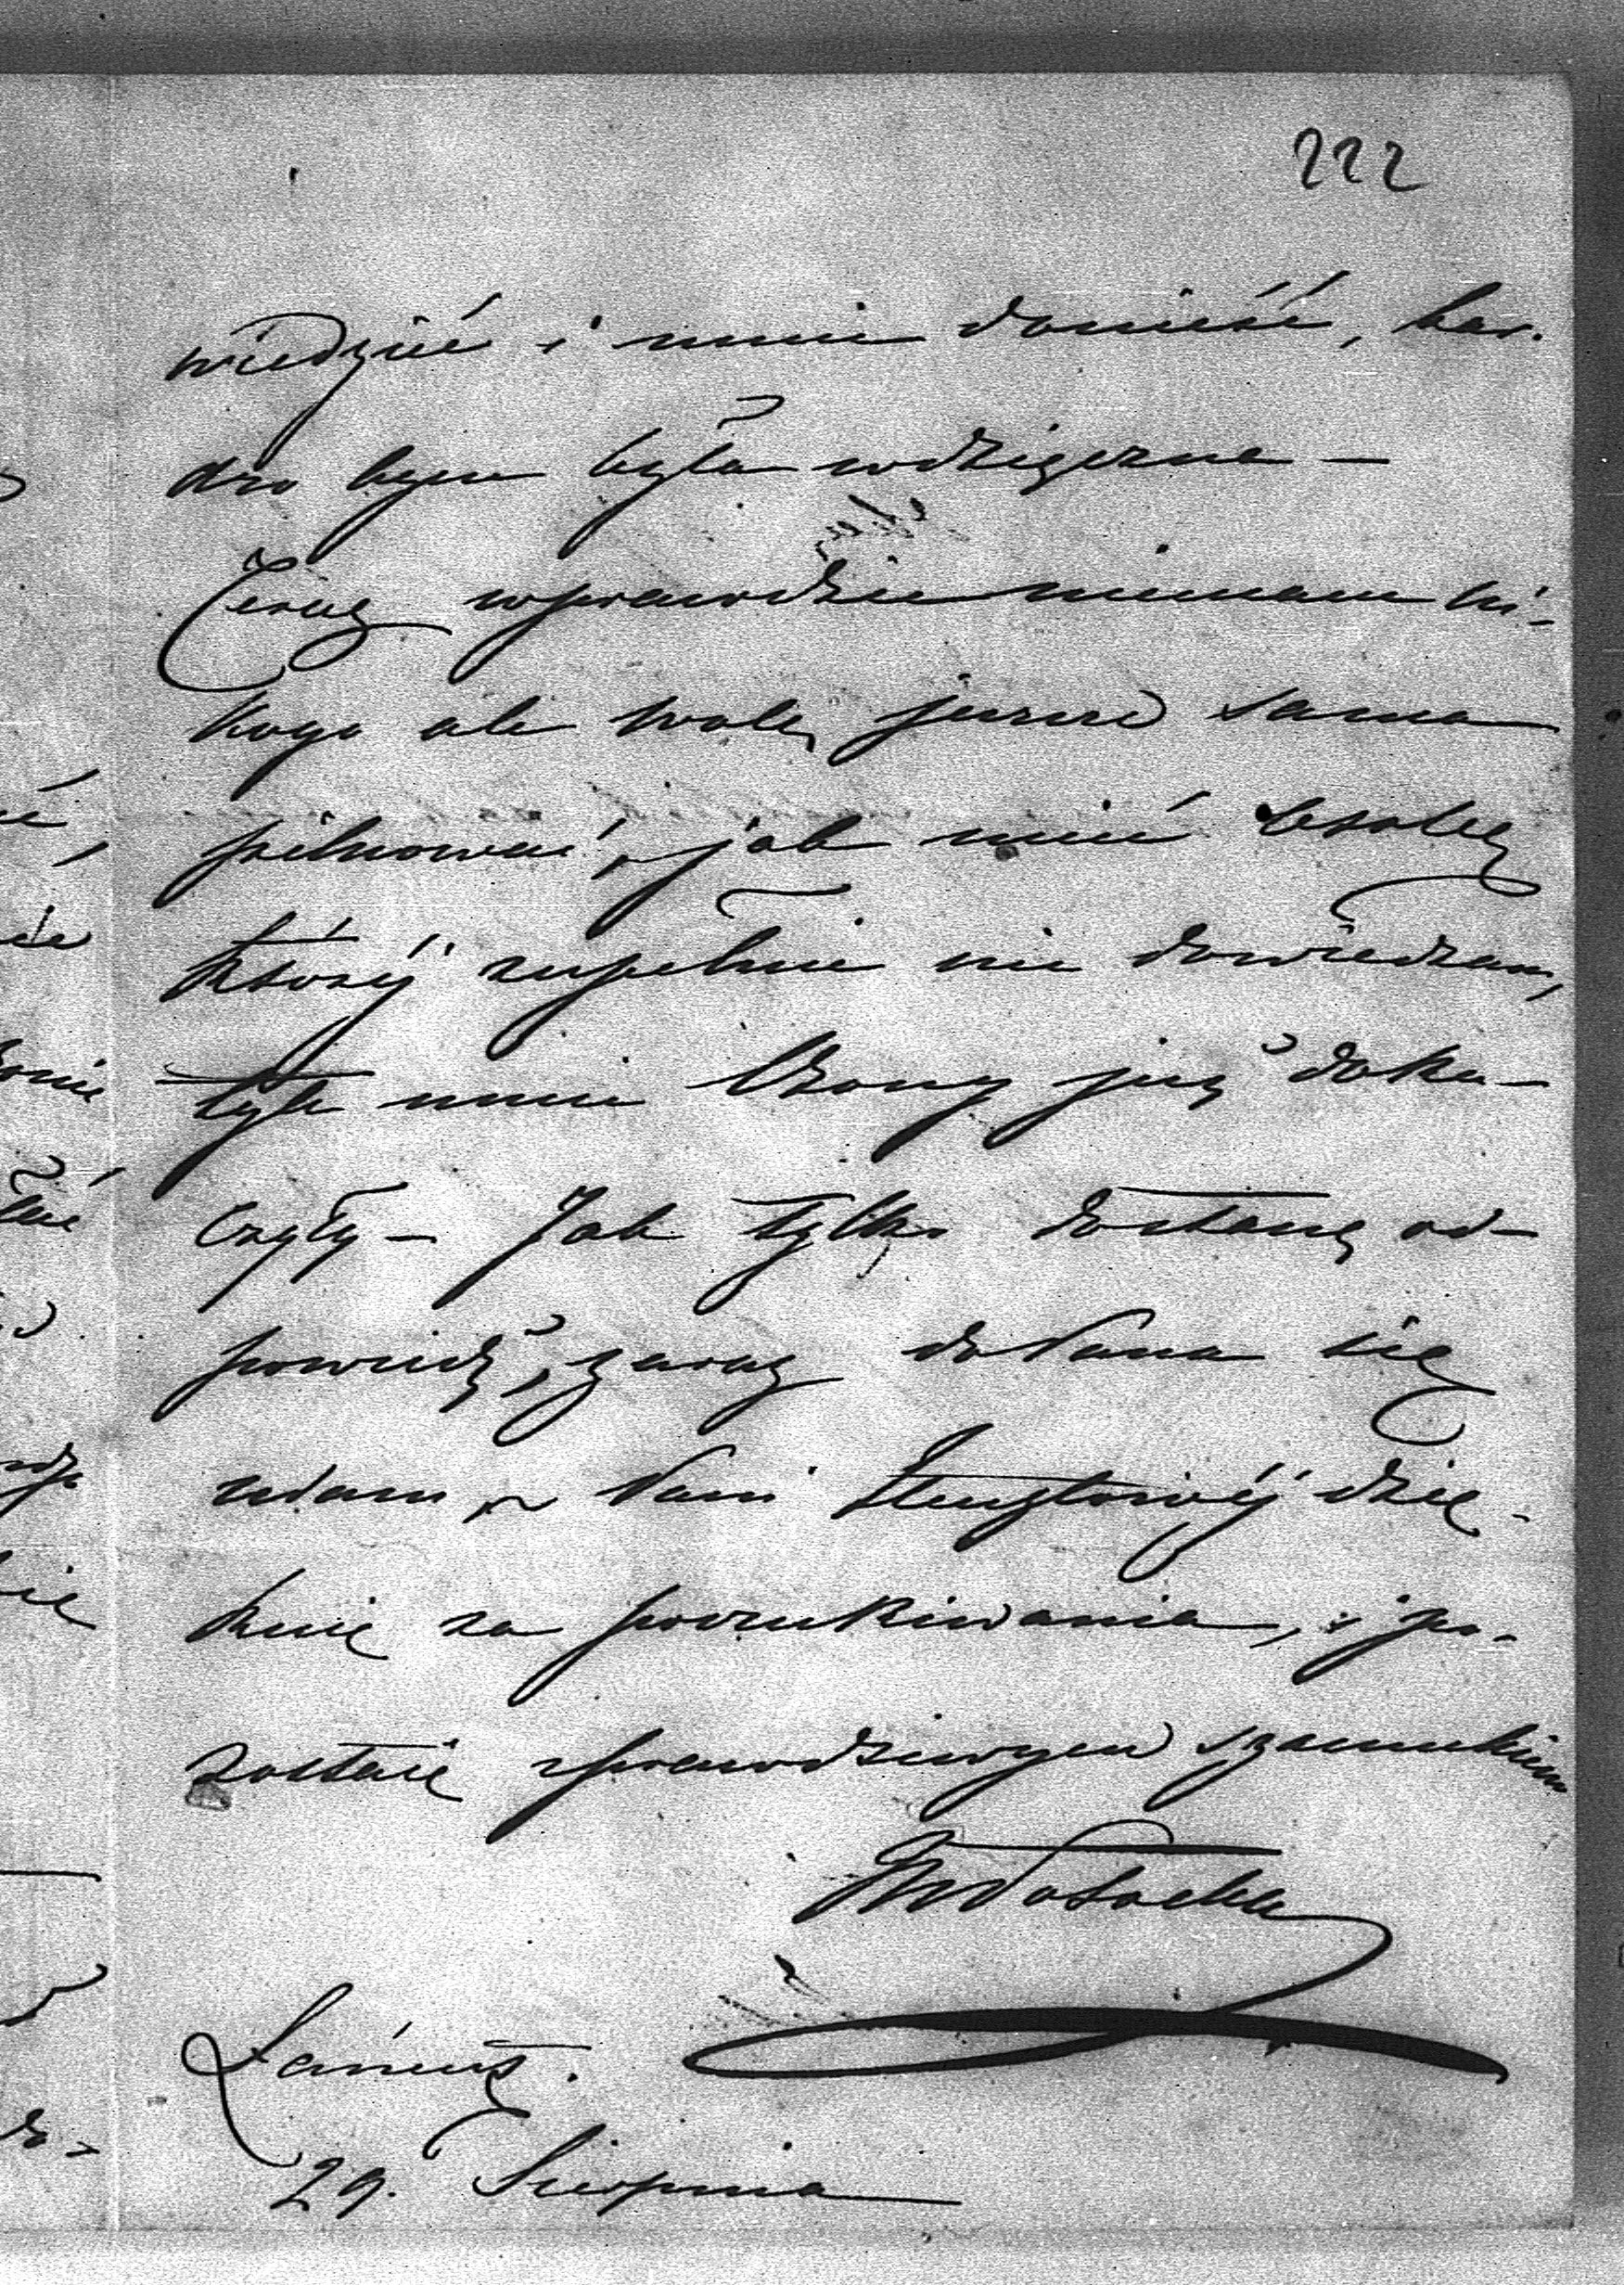 222
wiedzieć i mnie donieść, bar.
dzo bym była wdzięczna —
Teraz wprawdzie niemam ni-
kogo ale wolę jeszcze sama
pilnować, jak mieć osobę
któréj zupełnie nie dowierzam,
tyle mnie Bony już doku-
czyły — Jak tylko dostanę od-
powiedź, zaraz do Pana się
udam, Pani dzię-
kuję za poszukiwania, i po-
zostaję z prawdziwym szacunkiem
Potocka
Łańcut.
29. Sierpnia